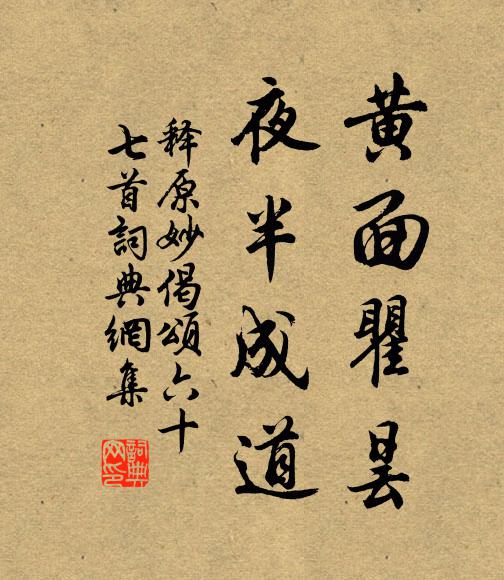 黄面瞿曇
夜半成道
释原妙偈頌六十
七首詞典網集
詞典
网印